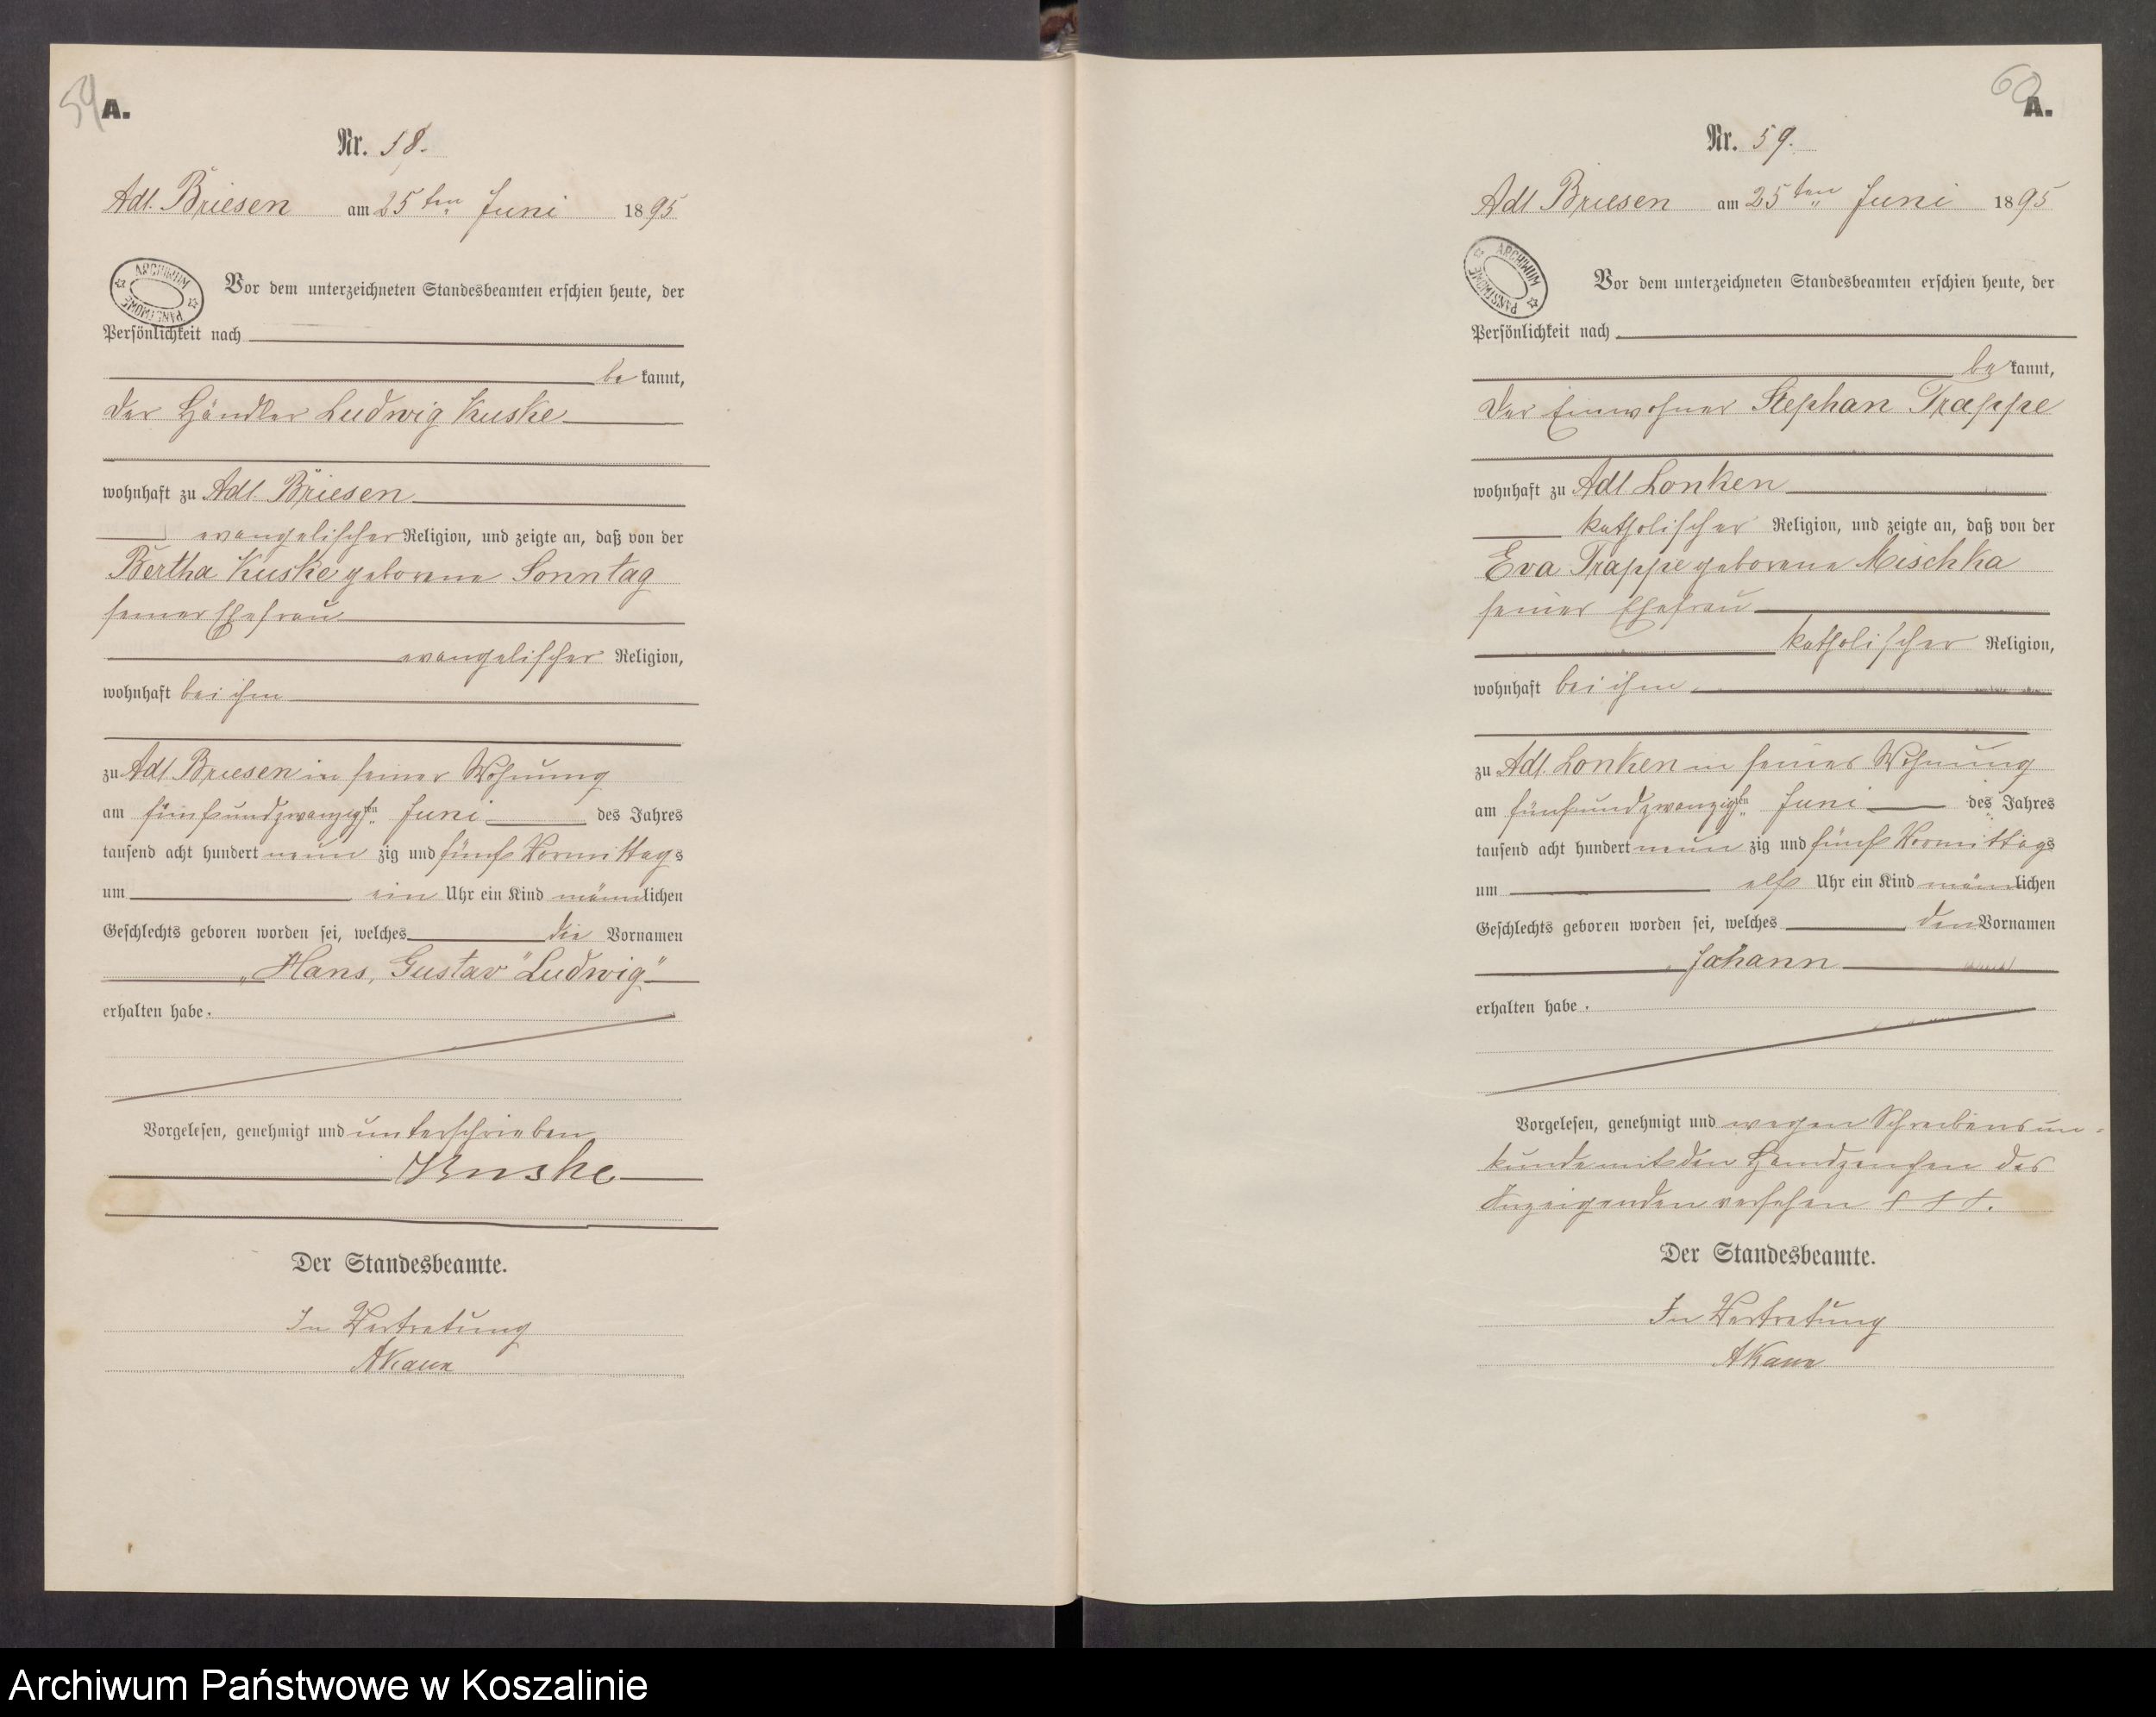 59
A.
Nr. 58.
Adl. Briesen am 25ten Juni 1895
ARCHIWUM PAŃSTWOWE
Vor dem unterzeichneten Standesbeamten erschien heute, der
Persönlichkeit nach
be kannt,
der Händler Ludwig Kuske
wohnhaft zu Adl. Briesen
evangelischer Religion, und zeigte an, daß von der
Bertha Kuske geborene Sonntag
seiner Ehefrau
evangelischer Religion,
wohnhaft bei ihm
zu Adl. Briesen in seiner Wohnung
am fünfundzwanzigsten Juni des Jahres
tausend acht hundert neun zig und fünf Vormittags
um ein Uhr ein Kind männlichen
Geschlechts geboren worden sei, welches die Vornamen
„Hans, Gustav "Ludwig"
erhalten habe.
Vorgelesen, genehmigt und unterschrieben
Kuske
Der Standesbeamte.
In Vertretung
60
A.
Nr. 59.
Adl Briesen am 25ten Juni 1895
ARCHIWUM PAŃSTWOWE
Vor dem unterzeichneten Standesbeamten erschien heute, der
Persönlichkeit nach
be kannt,
der Einwohner Stephan Trappe
wohnhaft zu Adl Lonken
katholischer Religion, und zeigte an, daß von der
Eva Trappe geborene Mischka
seiner Ehefrau
katholischer Religion,
wohnhaft bei ihm
zu Adl. Lonken in seiner Wohnung
am fünfundzwanzigsten Juni des Jahres
tausend acht hundert neun zig und fünf Vormittags
um elf Uhr ein Kind männlichen
Geschlechts geboren worden sei, welches den Vornamen
Johann
erhalten habe.
Vorgelesen, genehmigt und wegen Schreibensun-
kunde mit den Handzeichen des
Anzeigenden versehen † † †.
Der Standesbeamte.
In Vertretung
Archiwum Państwowe w Koszalinie